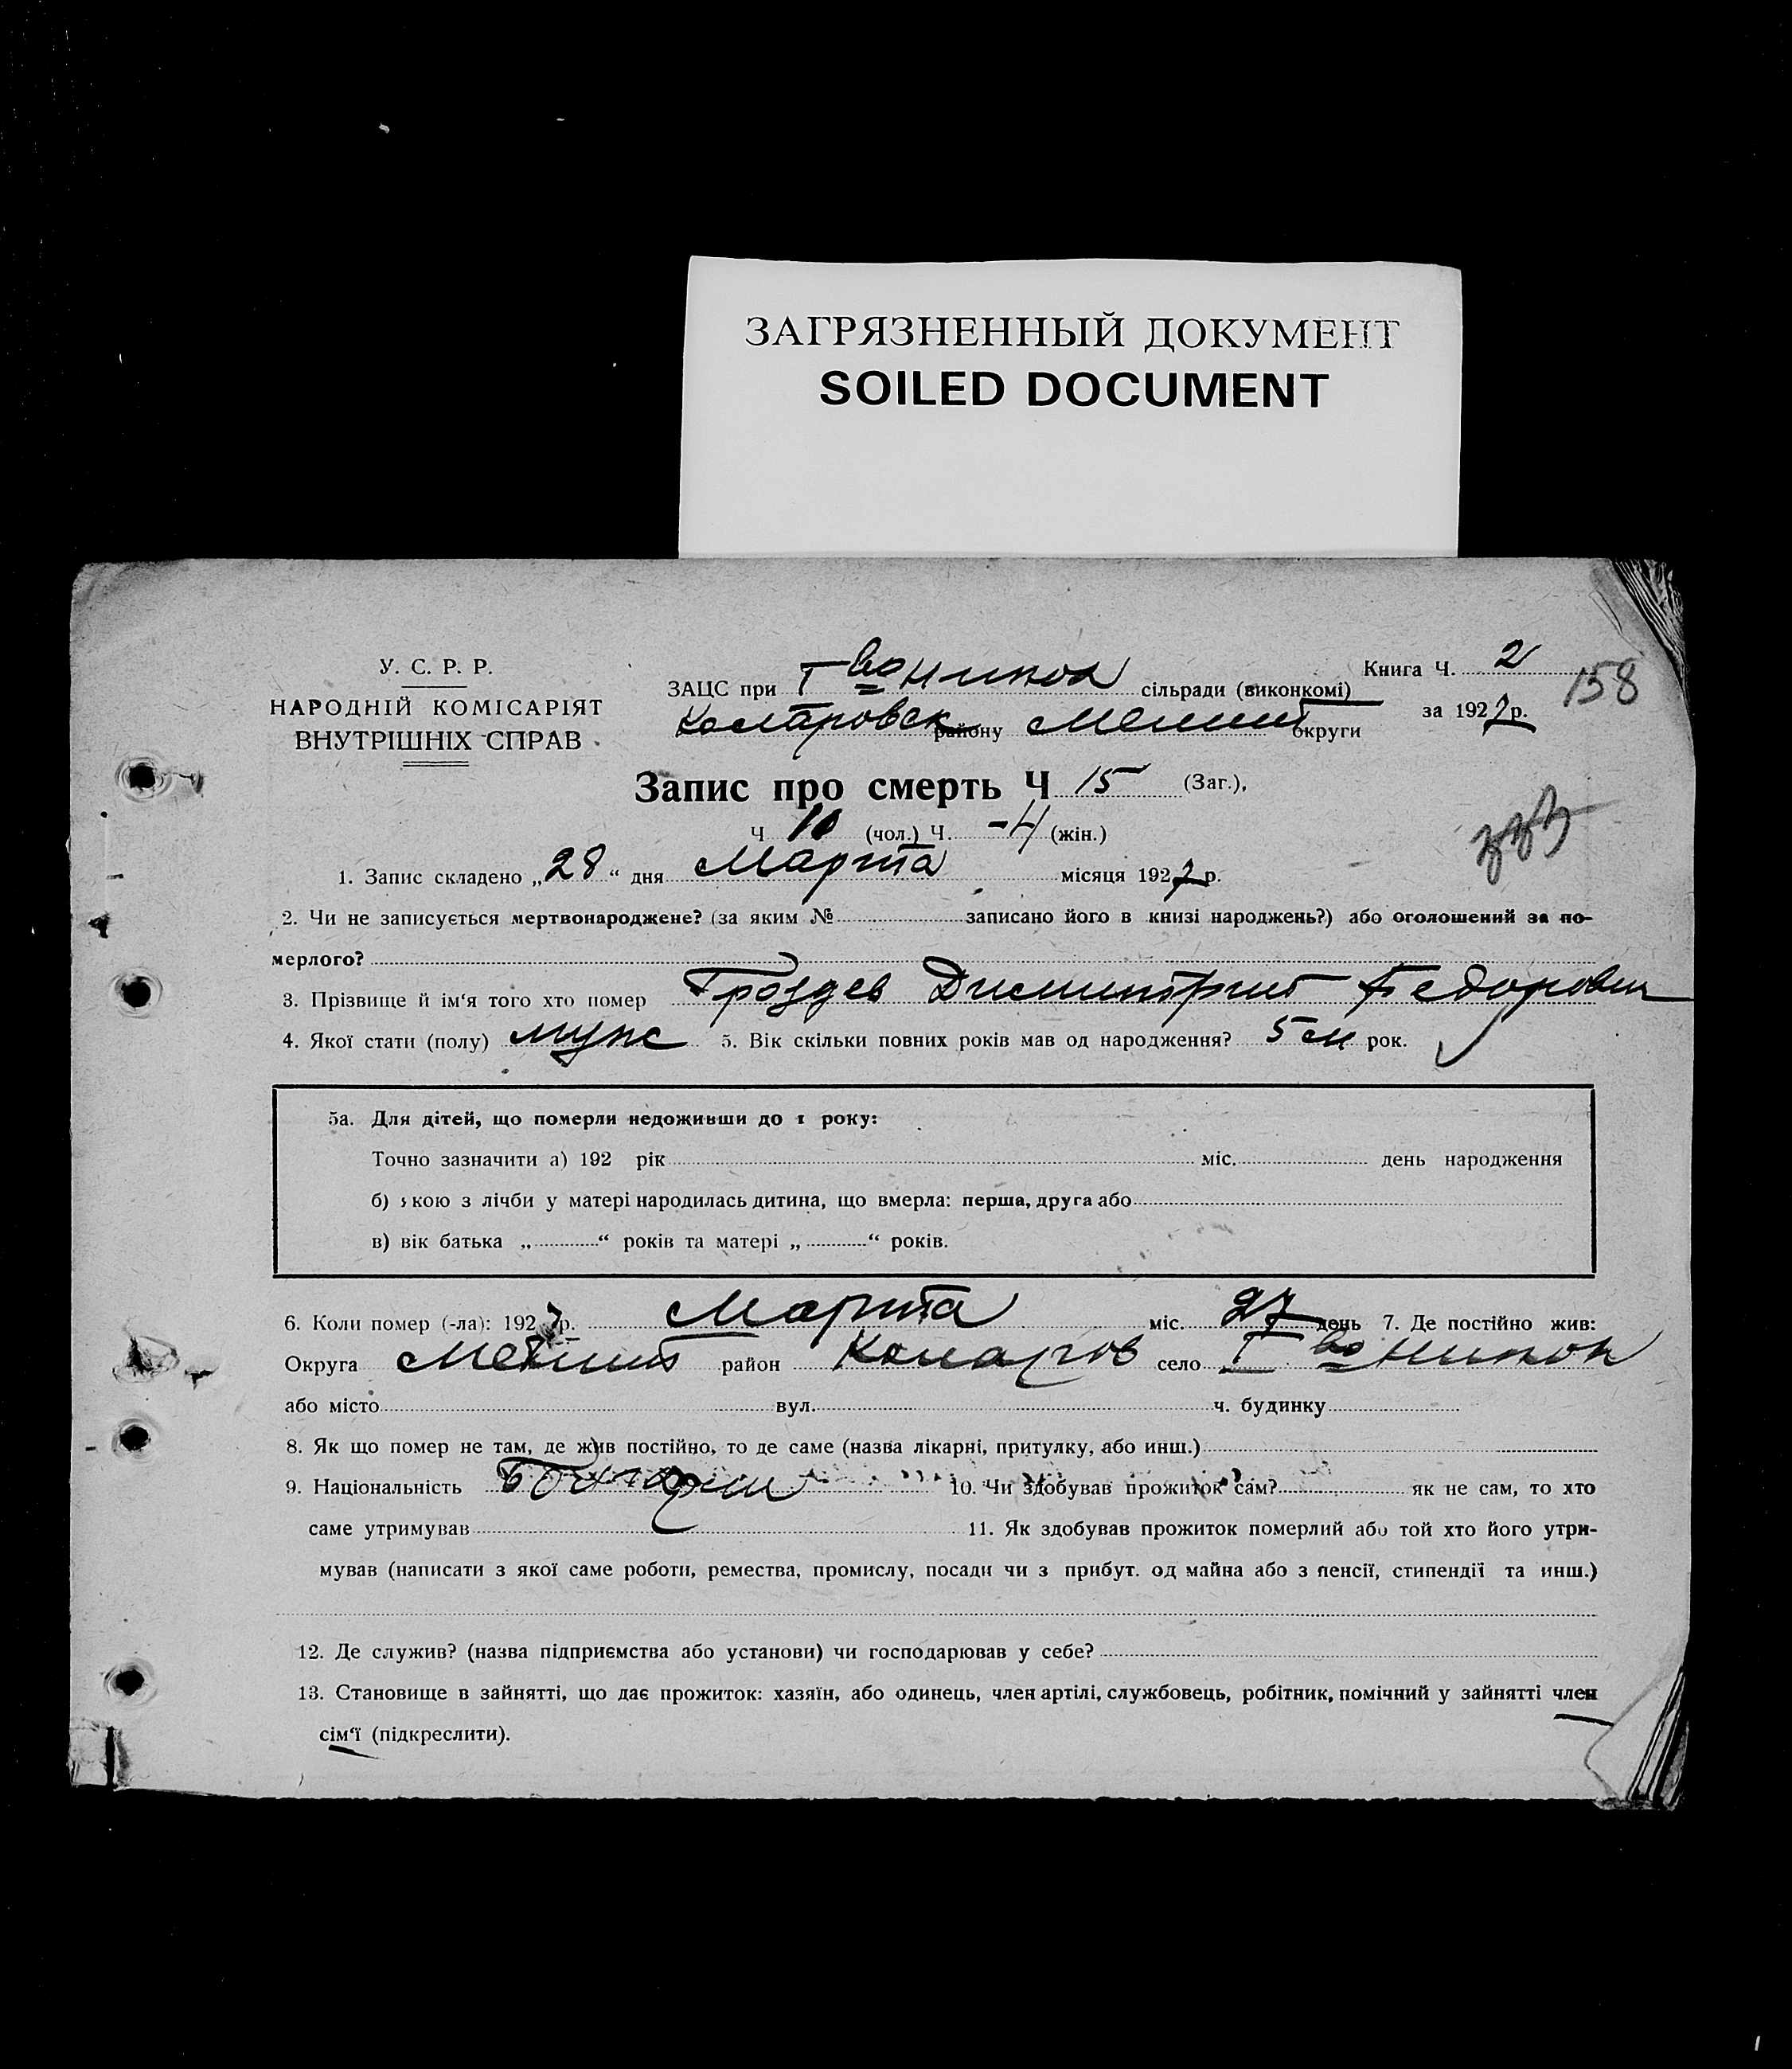 ЗАГРЯЗНЕННЫЙ ДОКУМЕНТ
SOILED DOCUMENT
У. С. Р. Р.
НАРОДНІЙ КОМІСАРІЯТ
ВНУТРІШНІХ СПРАВ
Книга Ч. 2
158
ЗАЦС при Iво Никол сільради (виконкомі)
за 1927 р.
Комаровск району Мелит округи
Запис про смерть Ч 15 (Заг.),
Ч (чол.) Ч. (жін.)
1. Запис складено „28“ дня Марта місяця 1927 р.
2. Чи не записується мертвонароджене? (за яким № записано його в книзі народжень?) або оголошений за по-
мерлого?
3. Прізвище й ім'я того хто помер Гроздев Димитрий Федорович
4. Якої стати (полу) мужс 5. Вік скільки повних років мав од народження? 5 м рок.
5а. Для дітей, що померли недоживши до 1 року:
Точно зазначити а) 192 рік міс. день народження
б) якою з лічби у матері народилась дитина, що вмерла: перша, друга або
в) вік батька „ “ років та матері „ “ років.
6. Коли помер (-ла): 1927 р. Марта міс. 27 день 7. Де постійно жив:
Округа Мелит район Комаров село Iво Никол
або місто вул. ч. будинку
8. Як що помер не там, де жив постійно, то де саме (назва лікарні, притулку, або инш.)
9. Національність Болгарин 10. Чи здобував прожиток сам? як не сам, то хто
саме утримував 11. Як здобував прожиток померлий або той хто його утри-
мував (написати з якої саме роботи, ремества, промислу, посади чи з прибут. од майна або з пенсії, стипендії та инш.)
12. Де служив? (назва підприємства або установи) чи господарював у себе?
13. Становище в зайнятті, що дає прожиток: хазяїн, або одинець, член артілі, службовець, робітник, помічний у зайнятті член
сім'ї (підкреслити).